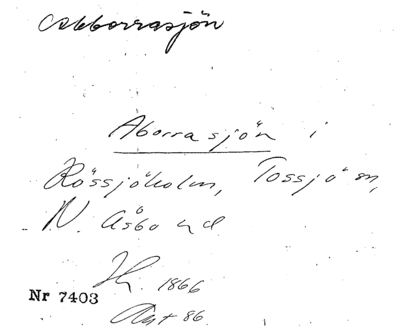 Abborrasjön
Aborrasjön i
Rössjöholm, Tossjö sn,
N. Åsbo hd
1866
Nr 7403
86